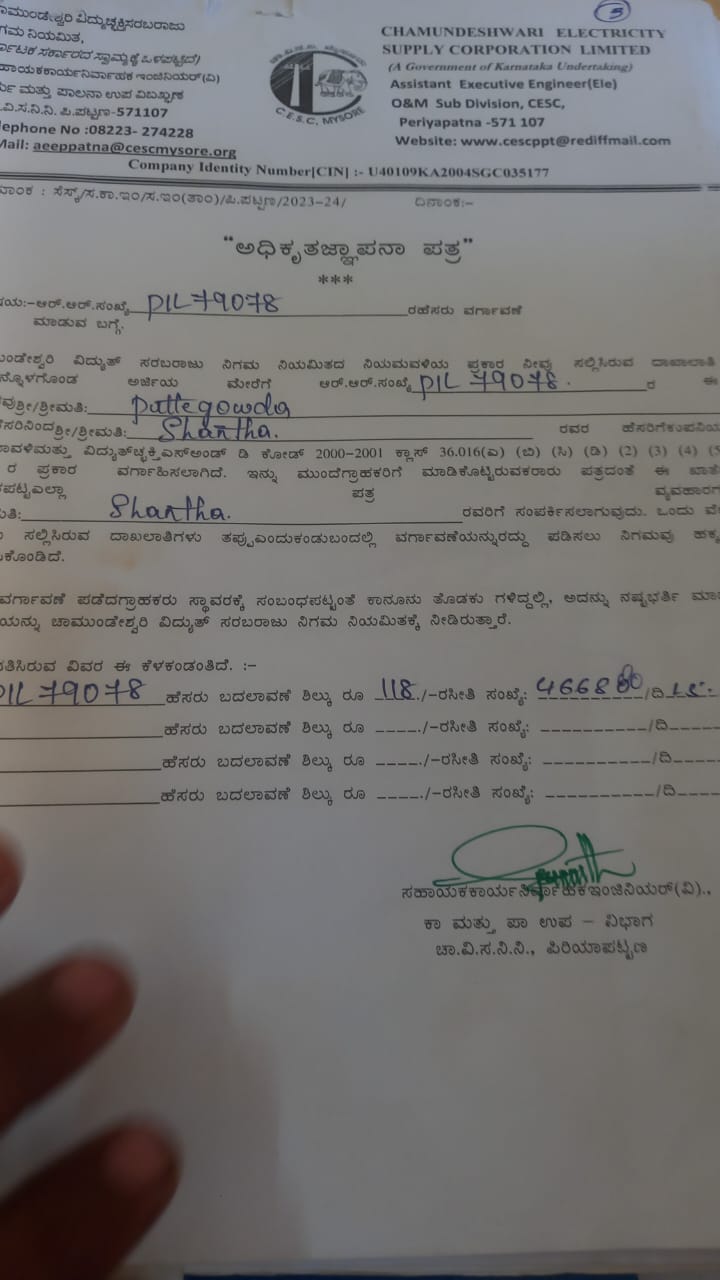 ಾಮುಂಡೇಶ್ವರಿ ವಿದ್ಯುಚ್ಛಕ್ತಿಸರಬರಾಜು
ಗಮ ನಿಯಮಿತ,
ರ್ನಾಟಕ ಸರ್ಕಾರದ ಸ್ವಾಮ್ಯಕ್ಕೆ ಒಳಪಟ್ಟಿದೆ)
ಹಾಯಕಕಾರ್ಯನಿರ್ವಾಹಕ ಇಂಜಿನಿಯರ್(ವಿ)
ರ್ಯ ಮತ್ತು ಪಾಲನಾ ಉಪ ವಿಭಾಗ
.ವಿ.ಸ.ನಿ.ನಿ. ಪಿ.ಪಟ್ಟಣ-571107
lephone No :08223- 274228
Mail: aeeppatna@cescmysore.org
3
CHAMUNDESHWARI ELECTRICITY
SUPPLY CORPORATION LIMITED
(A Government of Karnataka Undertaking)
Assistant Executive Engineer(Ele)
O&M Sub Division, CESC,
Periyapatna -571 107
Website: www.cescppt@rediffmail.com
C.E.S.C. MYSORE
Company Identity Number[CIN] :- U40109KA2004SGC035177
ಮಾಂಕ : ಸೆಸ್ಕ್/ಸ.ಕಾ.ಇಂ/ಸ.ಇಂ(ತಾಂ)/ಪಿ.ಪಟ್ಟಣ/2023-24/ ದಿನಾಂಕ:-
"ಅಧಿಕೃತಜ್ಞಾಪನಾ ಪತ್ರ"
***
ಷಯ:-ಆರ್.ಆರ್.ಸಂಖ್ಯೆ PIL79078 ರಹೆಸರು ವರ್ಗಾವಣೆ
ಮಾಡುವ ಬಗ್ಗೆ.
ಮುಂಡೇಶ್ವರಿ ವಿದ್ಯುತ್ ಸರಬರಾಜು ನಿಗಮ ನಿಯಮಿತದ ನಿಯಮವಳಿಯ ಪ್ರಕಾರ ನೀವು ಸಲ್ಲಿಸಿರುವ ದಾಖಲಾತಿ
ನ್ನೊಳಗೊಂಡ ಅರ್ಜಿಯ ಮೇರೆಗೆ ಆರ್.ಆರ್.ಸಂಖ್ಯೆ PIL 79078. ರ ಈ
ವುಶ್ರೀ/ಶ್ರೀಮತಿ: Puttegowda
ಹೆಸರಿನಿಂದಶ್ರೀ/ಶ್ರೀಮತಿ: Shantha. ರವರ ಹೆಸರಿಗೆಕಂಪನಿಯ
ಾವಳಿಮತ್ತು ವಿದ್ಯುತ್‌ಚ್ಛಕ್ತಿಎಸ್‌ಅಂಡ್ ಡಿ ಕೋಡ್ 2000-2001 ಕ್ಲಾಸ್ 36.016(ಎ) (ಬಿ) (ಸಿ) (ಡಿ) (2) (3) (4) (5
ರ ಪ್ರಕಾರ ವರ್ಗಾಹಿಸಲಾಗಿದೆ. ಇನ್ನು ಮುಂದೆಗ್ರಾಹಕರಿಗೆ ಮಾಡಿಕೊಟ್ಟಿರುವಕರಾರು ಪತ್ರದಂತೆ ಈ ಖಾತೆ
ಪಟ್ಟಎಲ್ಲಾ ಪತ್ರ ವ್ಯವಹಾರಗ
ಮತಿ: Shantha. ರವರಿಗೆ ಸಂಪರ್ಕಿಸಲಾಗುವುದು. ಒಂದು ವೇ
ು ಸಲ್ಲಿಸಿರುವ ದಾಖಲಾತಿಗಳು ತಪ್ಪುಎಂದುಕಂಡುಬಂದಲ್ಲಿ ವರ್ಗಾವಣೆಯನ್ನುರದ್ದು ಪಡಿಸಲು ನಿಗಮವು ಹಕ್ಕ
ಿಕೊಂಡಿದೆ.
ವರ್ಗಾವಣೆ ಪಡೆದಗ್ರಾಹಕರು ಸ್ಥಾವರಕ್ಕೆ ಸಂಬಂಧಪಟ್ಟಂತೆ ಕಾನೂನು ತೊಡಕು ಗಳಿದ್ದಲ್ಲಿ, ಅದನ್ನು ನಷ್ಟಭರ್ತಿ ಮಾ
ಯನ್ನು ಚಾಮುಂಡೇಶ್ವರಿ ವಿದ್ಯುತ್ ಸರಬರಾಜು ನಿಗಮ ನಿಯಮಿತಕ್ಕೆ ನೀಡಿರುತ್ತಾರೆ.
ವತಿಸಿರುವ ವಿವರ ಈ ಕೆಳಕಂಡಂತಿದೆ. :-
PIL79078 ಹೆಸರು ಬದಲಾವಣೆ ಶಿಲ್ಕು ರೂ 118./-ರಸೀತಿ ಸಂಖ್ಯೆ: 466880/ದಿ
ಹೆಸರು ಬದಲಾವಣೆ ಶಿಲ್ಕು ರೂ ____./-ರಸೀತಿ ಸಂಖ್ಯೆ: __________/ದಿ____
ಹೆಸರು ಬದಲಾವಣೆ ಶಿಲ್ಕು ರೂ ____./-ರಸೀತಿ ಸಂಖ್ಯೆ: __________/ದಿ____
ಹೆಸರು ಬದಲಾವಣೆ ಶಿಲ್ಕು ರೂ ____./-ರಸೀತಿ ಸಂಖ್ಯೆ: __________/ದಿ____
ಸಹಾಯಕಕಾರ್ಯನಿರ್ವಾಹಕಇಂಜಿನಿಯರ್(ವಿ).,
ಕಾ ಮತ್ತು ಪಾ ಉಪ – ವಿಭಾಗ
ಚಾ.ವಿ.ಸ.ನಿ.ನಿ., ಪಿರಿಯಾಪಟ್ಟಣ